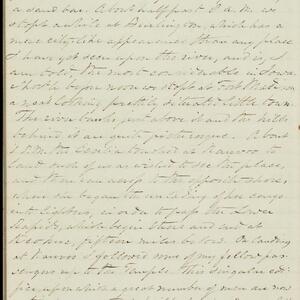 a sand bar. About half past 1 a.m. we
stopt a while at Burlington, which has a
more citylike appearance than any place
I have yet seen upon the river, and is, I
am told, the most considerable in Iowa.
before noon we stopt at Fort Madison,
a neat looking prettily situated little town.
The river banks, just above it and the hills
behind it are quite picturesque. About
the touched at Nauvoo to
land such of us as wished to see the place,
and then ran across to the opposite shore,
when she began the unlading of her cargo
into lighters, in order to pass the Lower
Rapids, which begin there and end at
Keokuk, fifteen miles below. On landing
at Nauvoo I followed some of my fellow pas-
sengers up to the Temple. This singular ed-
ifice, upon which a great number of men are now